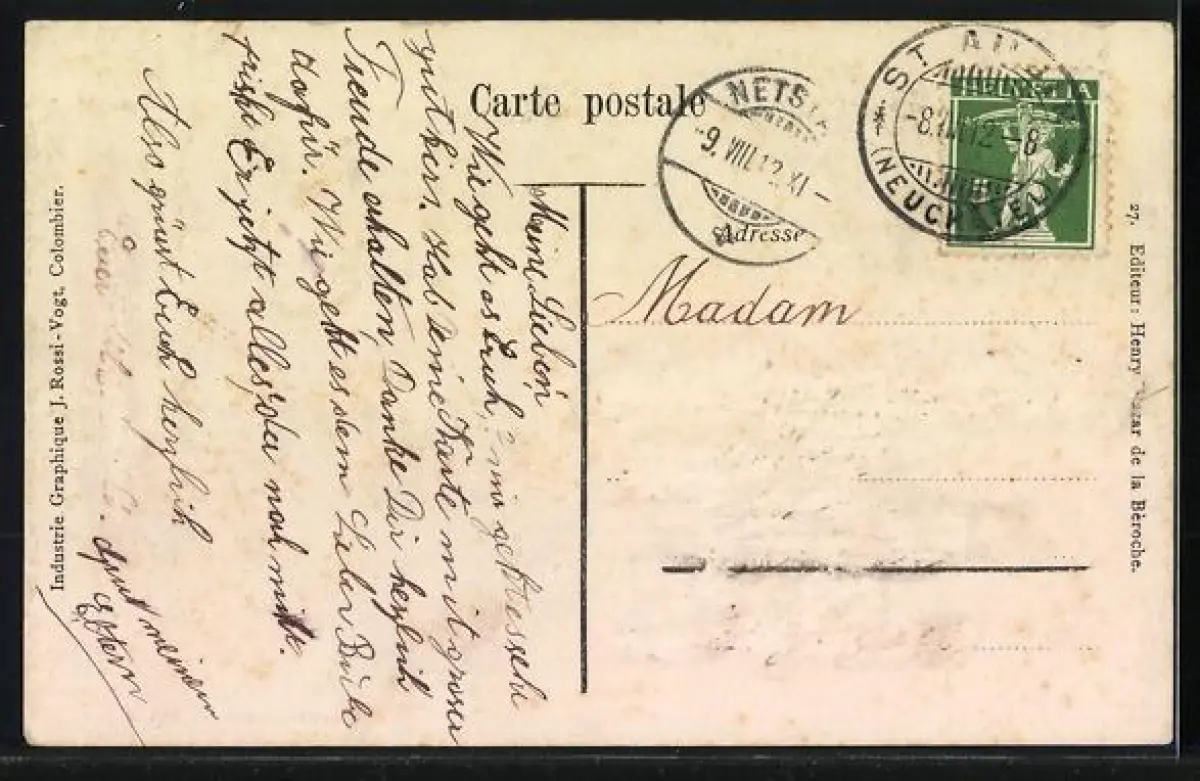 Carte postale
Adresse
Madam
NETSTA
-9. VIII. 12. XI -
ST AU
-8. VIII 12 - 8
(NEUCHATEL)
HELVETIA
27. Editeur: Henry de la Bèroche.
Industrie Graphique J. Rossi-Vogt, Colombier.
Meine Lieben
Wie geht es Euch, mir geht es sehr
gut hier. Hab deine Karte mit grosser
Freude erhalten, Danke Dir herzlich
dafür. Wie geht es dem Lieben Bube
Er jetzt alles oder noch nicht.
Also grüsst Euch herzlich
Gruss meinen
Eltern